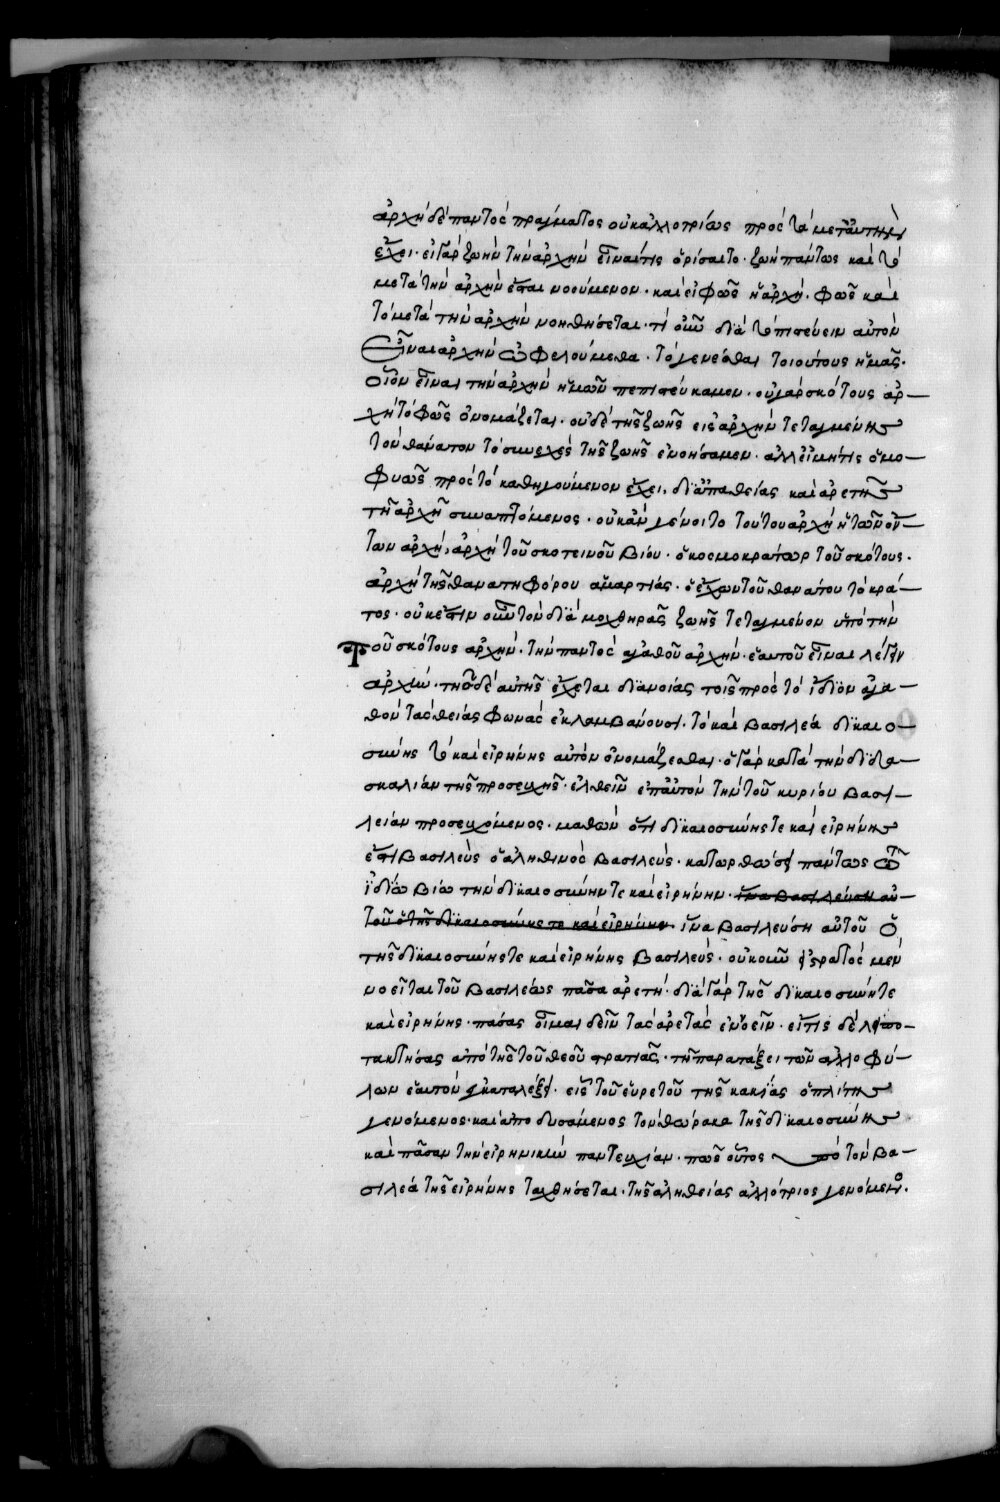 ἀρχὴ δὲ παντὸς πράγματος οὐκ ἀλλοτρίως πρὸς τὸ μετ᾽ αὐτὴν
ἔχει· εἰ γὰρ ζωὴν τὴν ἀρχὴν εἶναί τις ὁρίσαιτο· ζωὴ πάντως καὶ τὸ
μετὰ τὴν ἀρχὴν ἔσται νοούμενον· καὶ εἰ φῶς ἡ ἀρχή· φῶς καὶ
τὸ μετὰ τὴν ἀρχὴν νοηθήσεται· τί οὖν διὰ τὸ πιστεύειν αὐτὸν
εἶναι ἀρχὴν ὠφελούμεθα· τὸ γενέσθαι τοιούτους ἡμᾶς·
οἷον εἶναι τὴν ἀρχὴν ἡμῶν πεπιστεύκαμεν· οὐ γὰρ σκότους ἀρ–
χὴ τὸ φῶς ὀνομάζεται· οὐδὲ τῆς ζωῆς εἰς ἀρχὴν τεταγμένης
τὸν θάνατον τὸ συνεχὲς τῆς ζωῆς ἐνοήσαμεν· ἀλλ᾽ εἰ μή τις ὁμο–
φυῶς πρὸς τὸ καθηγούμενον ἔχει, δι᾽ ἀπαθείας καὶ ἀρετῆς
τῇ ἀρχῇ συναπτόμενος· οὐκ ἂν γένοιτο τούτου ἀρχὴ ἡ τῶν ὄν–
των ἀρχή, ἀρχὴ τοῦ σκοτεινοῦ βίου· ὁ κοσμοκράτωρ τοῦ σκότους·
ἀρχὴ τῆς θανατηφόρου ἁμαρτίας· ὁ ἔχων τοῦ θανάτου τὸ κρά–
τος· οὐκ ἔστιν οὖν τὸν διὰ μοχθηρᾶς ζωῆς τεταγμένον ὑπὸ τὴν
τοῦ σκότους ἀρχὴν· τὴν παντὸς ἀγαθοῦ ἀρχὴν· ἑαυτοῦ εἶναι λέγειν
ἀρχήν· τῆς δὲ αὐτῆς ἔχεται διανοίας τοῖς πρὸς τὸ ἴδιον ἀγα–
θὸν τὰς θείας φωνὰς ἐκλαμβάνουσι, τὸ καὶ βασιλέα δικαιο–
σύνης τὲ καὶ εἰρήνης αὐτὸν ὀνομάζεσθαι· ὁ γὰρ κατὰ τὴν διδα–
σκαλίαν τῆς προσευχῆς· ἐλθεῖν ἐπ᾽ αὐτὸν τὴν τοῦ κυρίου βασι–
λείαν προσευχόμενος· μαθὼν ὅτι δικαιοσύνης τε καὶ εἰρήνης
ἐστι βασιλεὺς ὁ ἀληθινὸς βασιλεύς· κατορθώσει πάντως ἐν τῷ
ἰδίῳ βίῳ τὴν δικαιοσύνην τε καὶ εἰρήνην· ἵνα βασιλεύση αὐ–
τοῦ ὁ τῆς δικαιοσύνης τε καὶ εἰρήνης· ἵνα βασιλεύση αὐτοῦ ὁ
τῆς δικαιοσύνης τε καὶ εἰρήνης βασιλεύς· οὐκοῦν στρατὸς μὲν
νοεῖται τοῦ βασιλέως πᾶσα ἀρετή· διὰ γὰρ τῆς δικαιοσύνης τε
καὶ εἰρήνης· πάσας οἶμαι δεῖν τὰς ἀρετὰς ἐννοεῖν· εἴ τις δὲ λειπο–
τακτήσας ἀπὸ τῆς τοῦ θεοῦ στρατιᾶς· τῇ παρατάξει τῶν ἀλλοφύ–
λων ἑαυτὸν ἐγκαταλέξει· εἷς τοῦ εὑρετοῦ τῆς κακίας ὁπλίτης
γενόμενος· καὶ ἀποδυσάμενος τὸν θώρακα τῆς δικαιοσύνης
καὶ πᾶσαν τὴν εἰρηνικὴν παντευχίαν· πῶς οὗτος ὑπὸ τὸν βα–
σιλέα τῆς εἰρήνης ταχθήσεται· τῆς ἀληθείας ἀλλότριος γενόμενος.